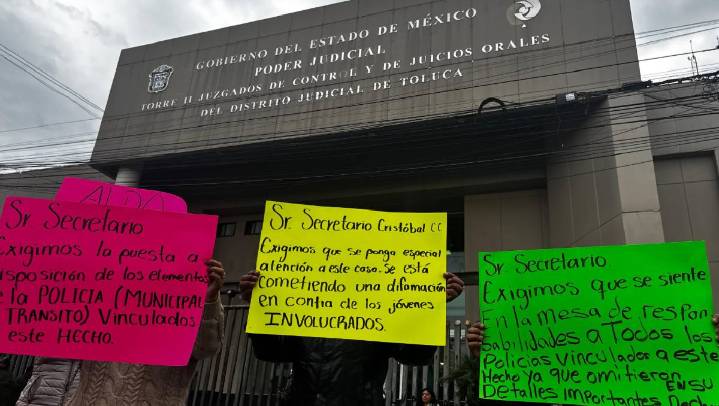 GOBIERNO DEL ESTADO DE MÉXICO
PODER JUDICIAL
TORRE II JUZGADOS DE CONTROL Y DE JUICIOS ORALES
DEL DISTRITO JUDICIAL DE TOLUCA
ALDO
Sr. Secretario
Exigimos la puesta a
disposición de los elementos
de la POLICIA (MUNICIPAL
TRANSITO) Vinculados
a este HECHO.
Sr. Secretario Cristóbal CC
Exigimos que se ponga especial
atención a este caso. Se está
cometiendo una difamación
en contra de los jóvenes
INVOLUCRADOS.
Sr. Secretario
Exigimos que se siente
En la mesa de respon
sabilidades a Todos los
Policías vinculados a este
Hecho ya que omitieron EN SU
Detalles importantes